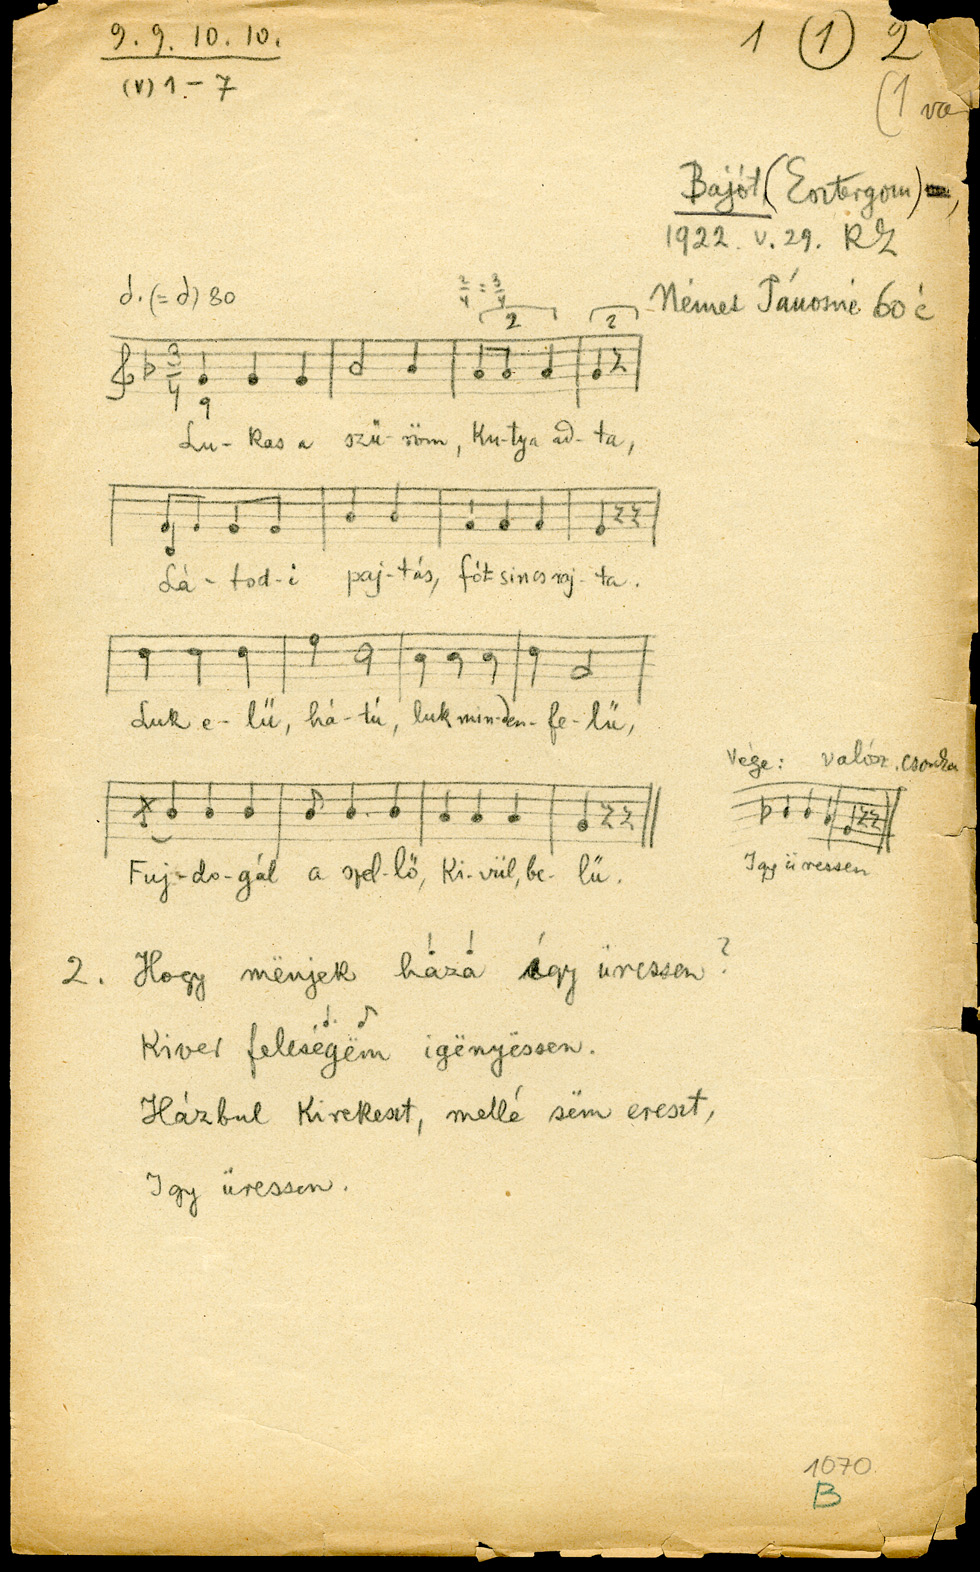 9. 9. 10. 10.
(V) 1 – 7
1 (1) 2
(1 va
Bajót (Esztergom),
1922. V. 29. KZ
Német Jánosné 60 é
(= ) 80
2/4 = 3/4
2 2
3/4
Lu- kas a szű- röm, Ku-tya ad- ta,
Lá- tod- i paj-tás, fót sincs raj- ta.
Luk e- lű, há-tú, luk min-den- fe- lű,
Vége: valósz. csonka
Fuj-do-gál a szel-lő, Ki-vül, be- lű.
Igy üressen
2. Hogy mënjek háza így üressen?
Kiver feleségëm igënyëssen.
Házbul kirekeszt, mellé sëm ereszt,
Igy üressen.
1070
B